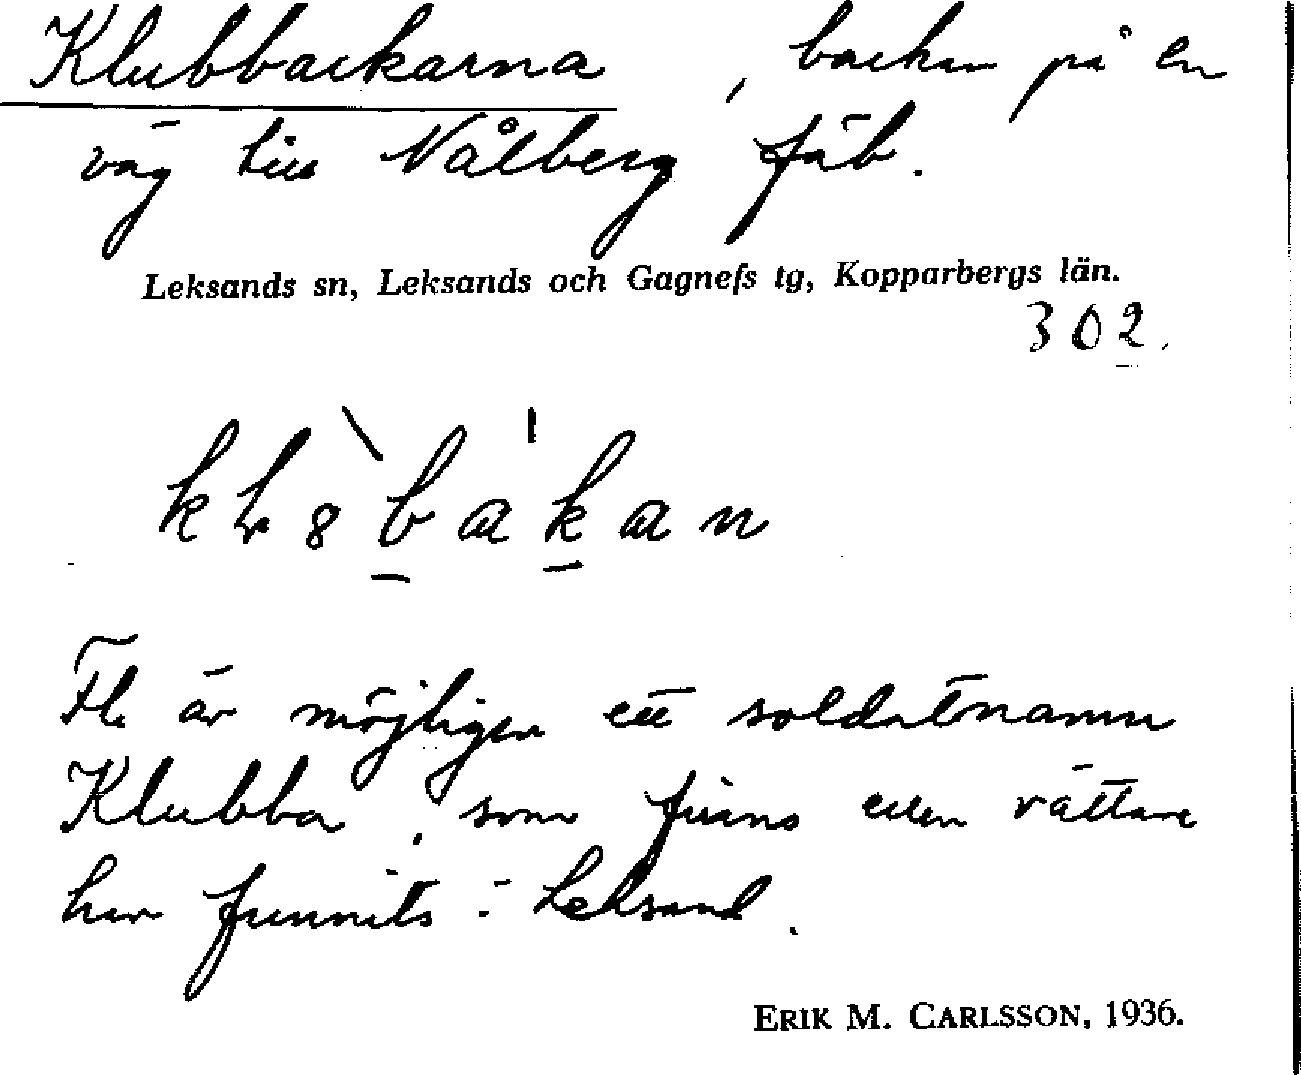 Klubbackarna, backar på en
väg till Nålberg fäb.
Leksands sn, Leksands och Gagnefs tg, Kopparbergs län.
302.
Fl. är möjligen ett soldatnamn
Klubba, som finns eller rättare
har funnits i Leksand.
ERIK M. CARLSSON, 1936.